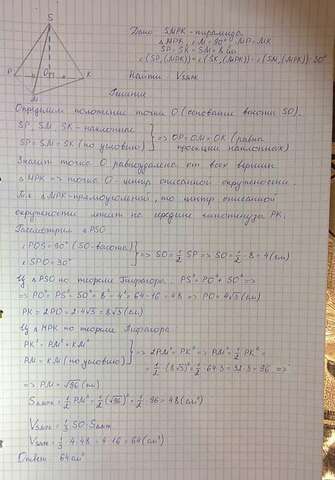 S
P
O
K
M
Дано: SMPK - пирамида
△MPK, ∠M=90° MP=MK
SP=SK=SM=8 см
∠(SP,(MPK))=∠(SK,(MPK))=∠(SM,(MPK))=30°
Найти: Vпир
Решение
Определим положение точки O (основание высоты SO).
SP, SM, SK - наклонные
SP=SM=SK (по условию) } => OP=OM=OK (равны проекции наклонных)
Значит точка O равноудалена от всех вершин
△MPK => точка O - центр описанной окружности.
т.к. △MPK - прямоугольный, то центр описанной
окружности лежит на середине гипотенузы PK.
Рассмотрим △PSO
∠POS=90° (SO - высота)
∠SPO=30° } => SO=1/2 SP => SO=1/2·8=4(см)
Из △PSO по теореме Пифагора: PS²=PO²+SO² =>
=> PO²=PS²-SO²=8²-4²=64-16=48 => PO=4√3(см)
PK=2PO=2·4√3=8√3(см)
Из △MPK по теореме Пифагора
PK²=PM²+KM²
PM=KM (по условию) } => 2PM²=PK² => PM²=1/2 PK²=
=1/2·(8√3)²=1/2·64·3=32·3=96 =>
=> PM=√96(см)
S△MPK=1/2 PM²=1/2(√96)²=1/2·96=48(см²)
Vпир=1/3 SO·S△MPK
Vпир=1/3·4·48=4·16=64(см³)
Ответ: 64см³